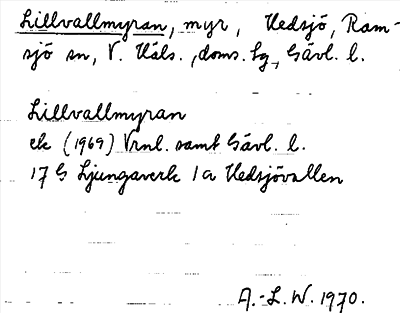 Lillvallmyran, myr, Hedsjö, Ram-
sjö sn, V. Häls., doms. sg, Gävl. l.
Lillvallmyran
ek (1969) Vrnl. samt Gävl. l.
17 G Ljungaverk 1a Hedsjövallen
A.-L. W. 1970.